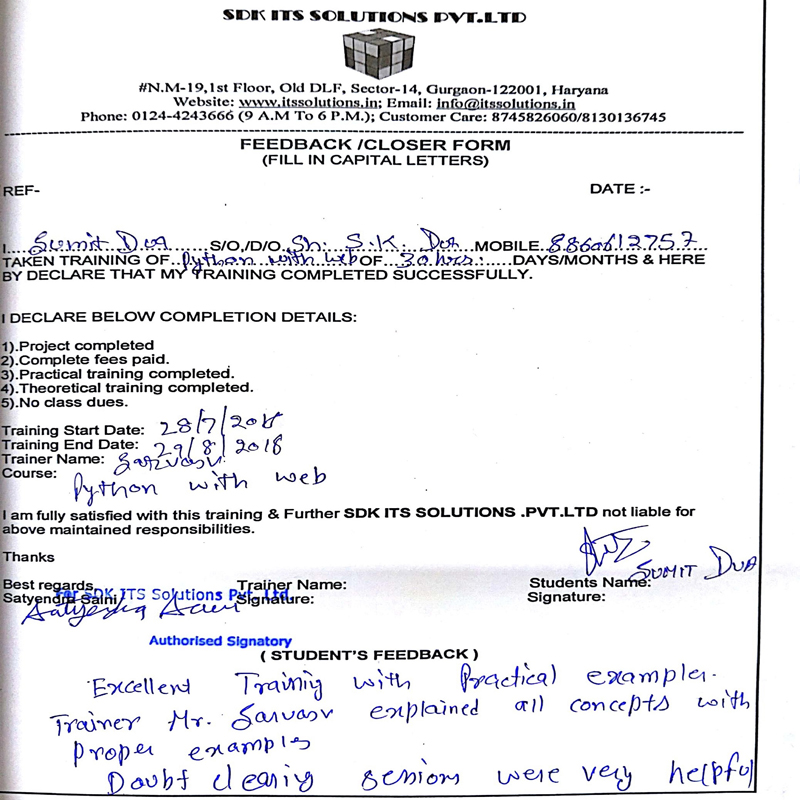 SDK ITS SOLUTIONS PVT.LTD
#N.M-19,1st Floor, Old DLF, Sector-14, Gurgaon-122001, Haryana
Website: www.itssolutions.in; Email: info@itssolutions.in
Phone: 0124-4243666 (9 A.M To 6 P.M.); Customer Care: 8745826060/8130136745
FEEDBACK /CLOSER FORM
(FILL IN CAPITAL LETTERS)
REF- DATE :-
I.....Sumit Dua.......S/O,/D/O.Sh. S.K. Dua..MOBILE.8860612757..
TAKEN TRAINING OF..Python with web OF..30 hrs......DAYS/MONTHS & HERE
BY DECLARE THAT MY TRAINING COMPLETED SUCCESSFULLY.
I DECLARE BELOW COMPLETION DETAILS:
1).Project completed
2).Complete fees paid.
3).Practical training completed.
4).Theoretical training completed.
5).No class dues.
Training Start Date: 28/7/2018
Training End Date: 29/8/2018
Trainer Name: Sarvasv
Course: Python with web
I am fully satisfied with this training & Further SDK ITS SOLUTIONS .PVT.LTD not liable for
above maintained responsibilities.
Thanks
Best regards, Trainer Name: Students Name: SUMIT DUA
For SDK ITS Solutions Pvt. Ltd.
Satyendra Saini Signature: Signature:
Authorised Signatory
( STUDENT'S FEEDBACK )
Excellent Training with Practical examples.
Trainer Mr. Sarvasv explained all concepts with
proper examples
Doubt clearing sessions were very helpful